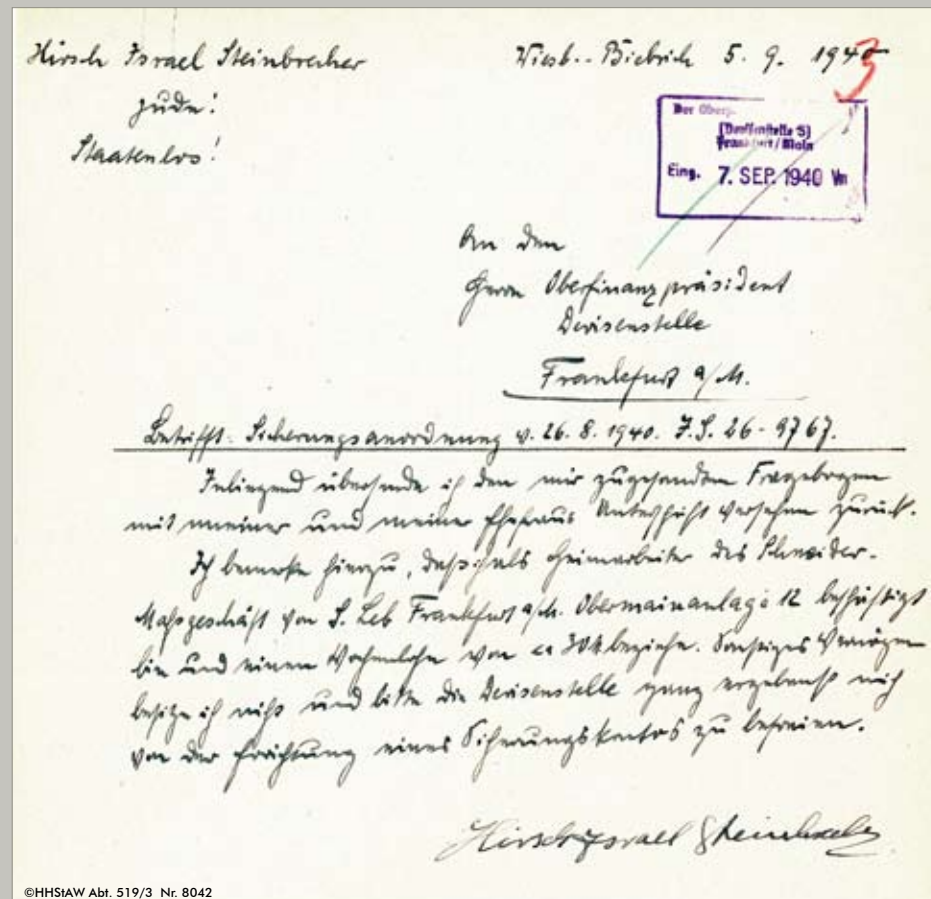 Hirsch Israel Steinbrecher
Wiesb.-Biebrich 5. 9. 1940
3
Jude!
Staatenlos!
Der Oberf
(Devisenstelle S)
Frankfurt/Main
Eing. 7. SEP. 1940 Vm
An den
Herrn Oberfinanzpräsident
Devisenstelle
Frankfurt a/M.
Betrifft: Sicherungsanordnung v. 26. 8. 1940. J.S. 26-9767.
Inliegend übersende ich den mir zugesandten Fragebogen
mit meiner und meiner Ehefraus Unterschrift versehen zurück.
Ich bemerke hierzu, daß ich als Heimarbeiter des Schneider-
Maßgeschäft von S. Leb Frankfurt a/M. Obermainanlage 12 beschäftigt
bin und einen Wochenlohn von ca 30 M beziehe. Sonstiges Vermögen
besitze ich nicht und bitte die Devisenstelle ganz ergebenst mich
von der Errichtung eines Sicherungskontos zu befreien.
Hirsch Israel Steinbrecher
©HHStAW Abt. 519/3 Nr. 8042